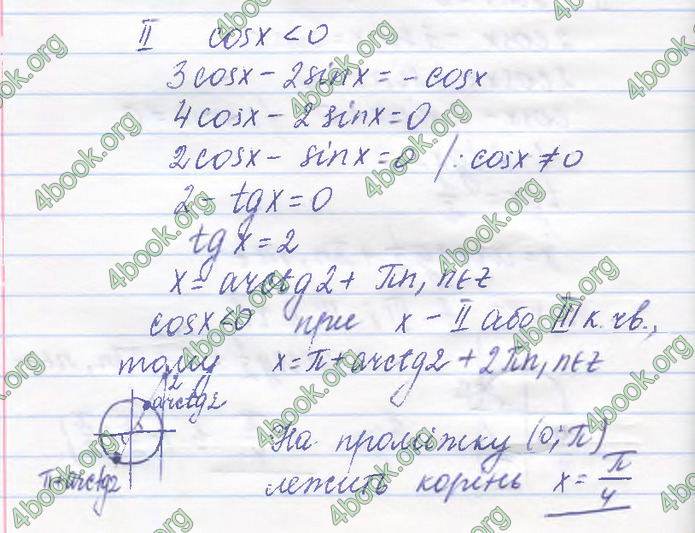 II cosx < 0
3cosx - 2sinx = - cosx
4cosx - 2sinx = 0
2cosx - sinx = 0 /: cosx ≠ 0
2 - tgx = 0
tgx = 2
x = arctg2 + πn, n∈z
cosx<0 при x - II або III к. чв.,
тому x = π + arctg2 + 2πn, n∈z
2
arctg2
π+arctg2
На проміжку (0; π)
лежить корінь x = π/4
4book.org